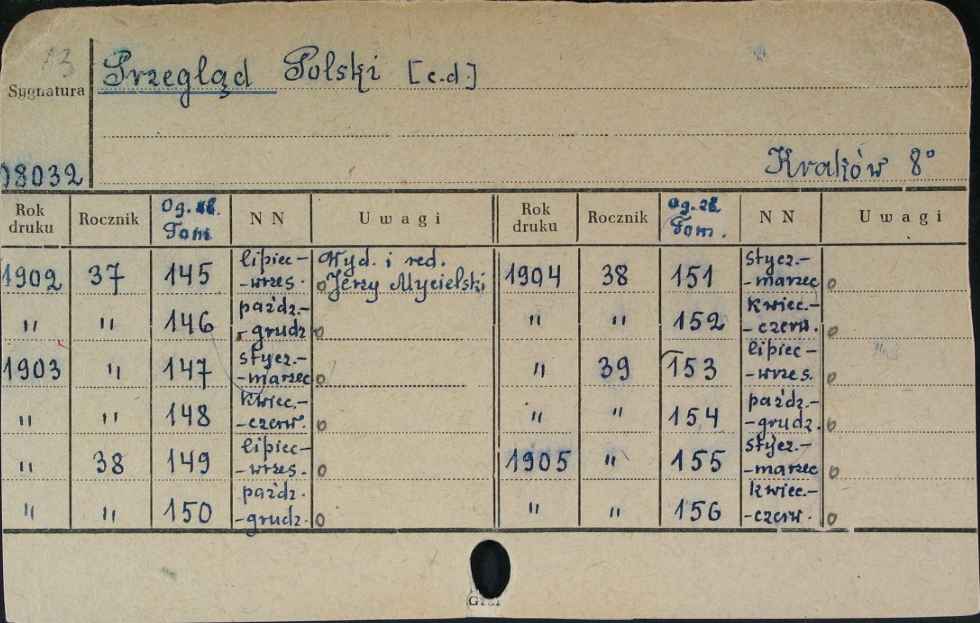 13
Przegląd Polski [c.d.]
Sygnatura
08032
Kraków 8°
Rok druku | Rocznik | Og. zb. Tom | NN | Uwagi | Rok druku | Rocznik | Og. zb. Tom. | NN | Uwagi
1902 | 37 | 145 | lipiec-wrzes. | o Wyd. i red. Jerzy Mycielski | 1904 | 38 | 151 | stycz.-marzec | o
" | " | 146 | paźdz.-grudz | o | " | " | 152 | kwiec.-czerw. | o
1903 | " | 147 | stycz.-marzec | o | " | 39 | 153 | lipiec-wrzes. | o
" | " | 148 | kwiec.-czerw. | o | " | " | 154 | paźdz.-grudz. | o
" | 38 | 149 | lipiec-wrzes. | o | 1905 | " | 155 | stycz.-marzec | o
" | " | 150 | paźdz.-grudz. | o | " | " | 156 | kwiec.-czerw. | o